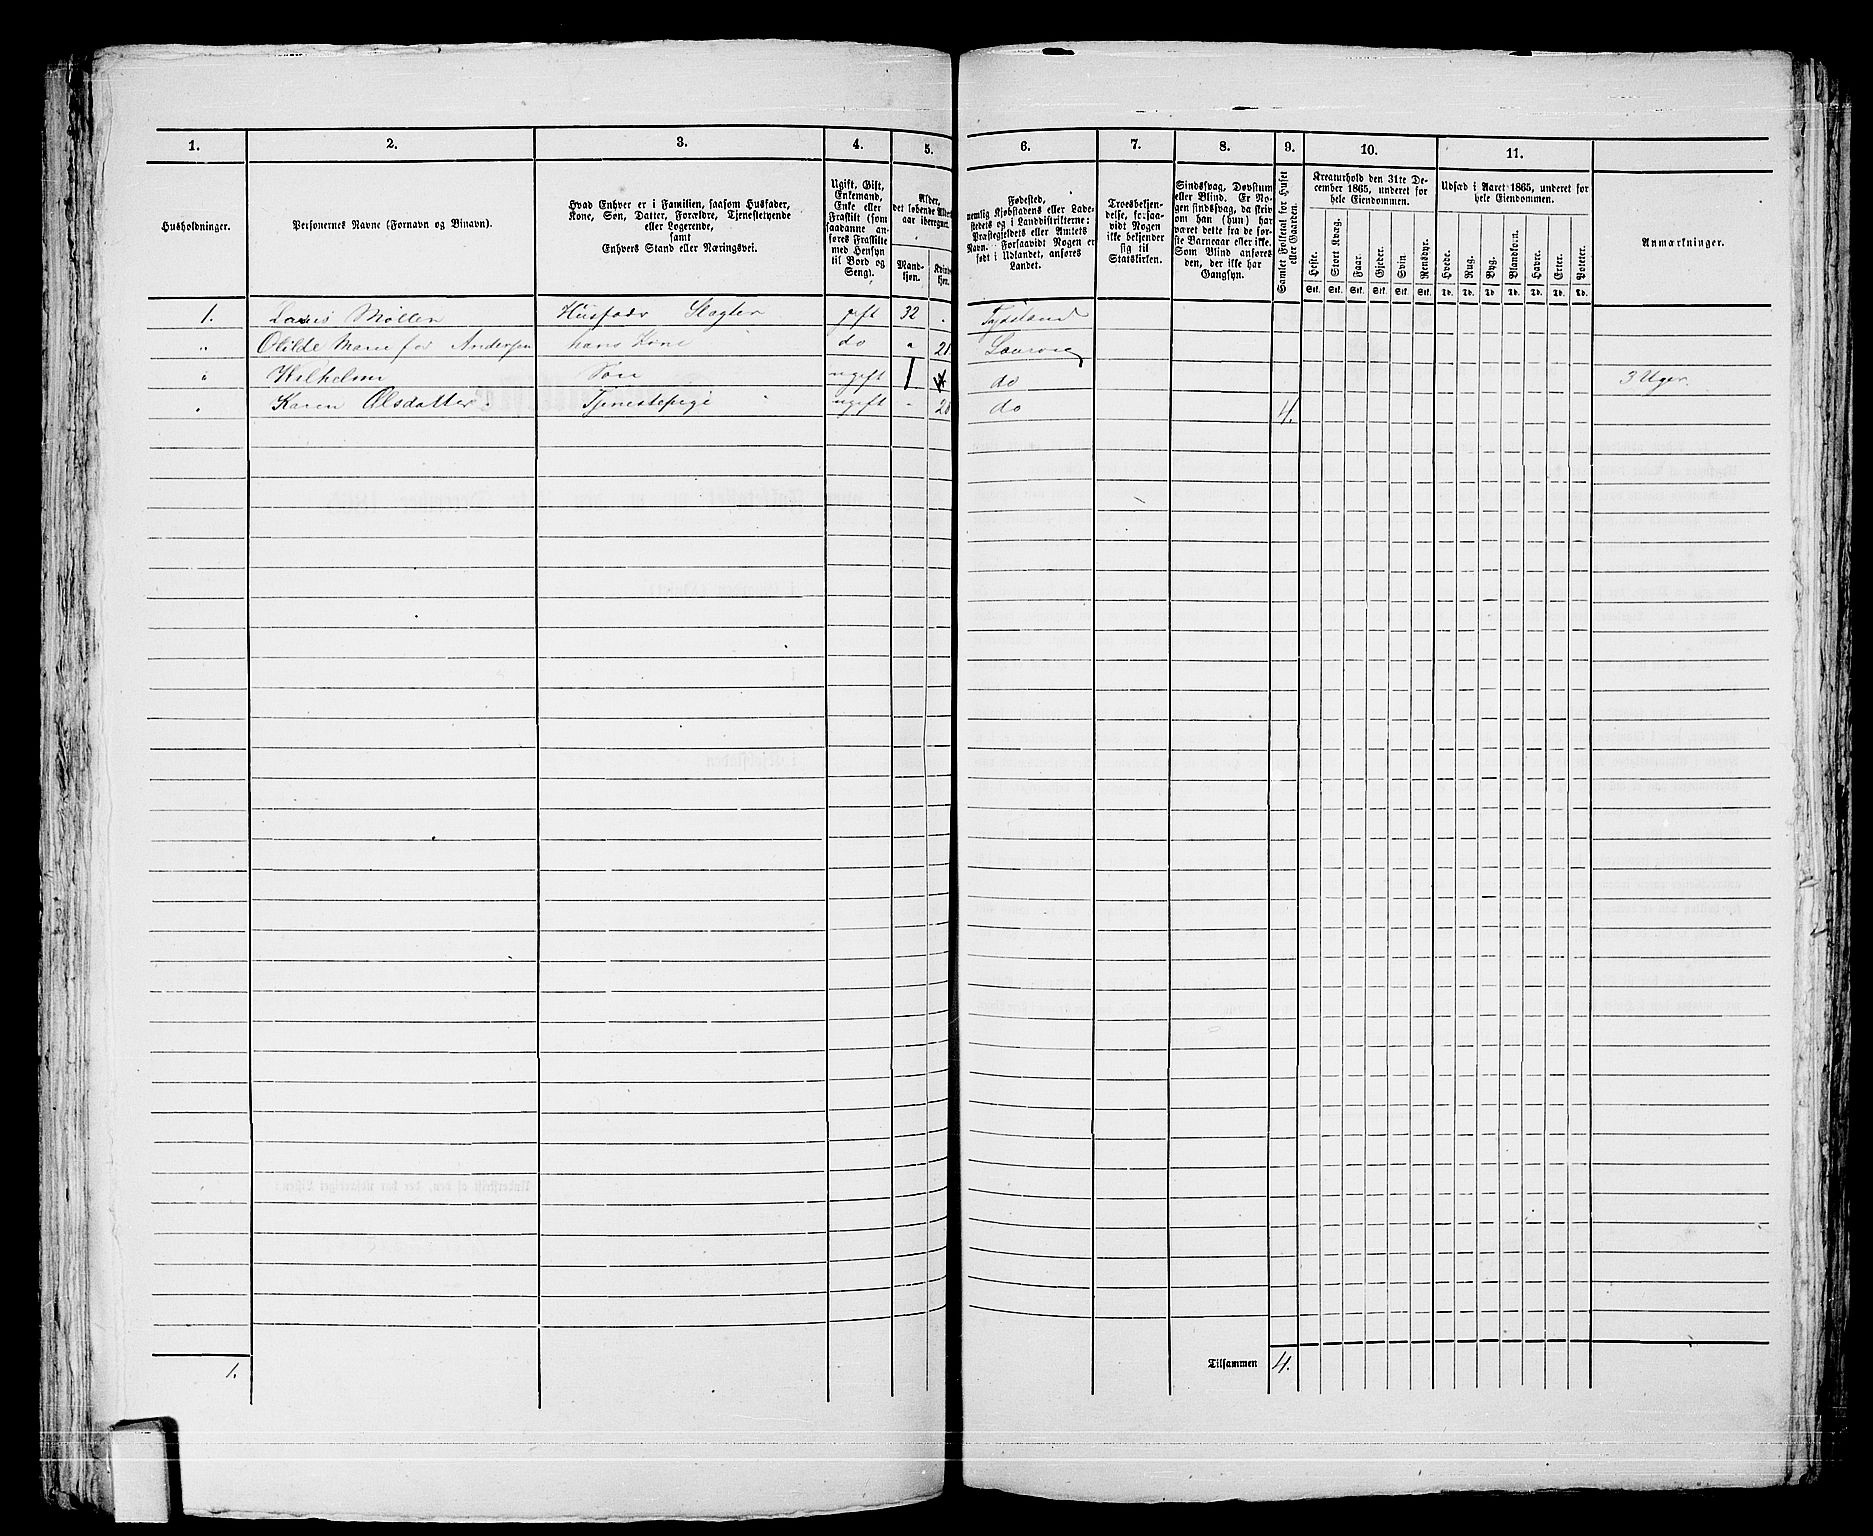 1. 2. 3. 4. 5. 6. 7. 8. 9. 10. 11.
Husholdninger.
Personernes Navne (Fornavn og Binavn).
Hvad Enhver er i Familien, saasom Husfader,
Kone, Søn, Datter, Forældre, Tjenestetyende
eller Logerende,
samt
Enhvers Stand eller Næringsvei.
Ugift, Gift,
Enkemand,
Enke eller
Fraskilt (som
saadanne an-
føres Fraskilte
med Hensyn
til Bord og
Seng).
Alder,
det løbende Alders-
aar iberegnet.
Mand-
kjøn.
Kvinde-
kjøn.
Fødested,
nemlig Kjøbstadens eller Lade-
stedets og i Landdistrikterne:
Præstegjeldets eller Amtets
Navn. Forsaavidt Nogen er
født i Udlandet, anføres
Landet.
Troesbekjen-
delse, forsaa-
vidt Nogen
ikke bekjender
sig til
Statskirken.
Sindssvag, Døvstum
eller Blind. Er No-
gen sindssvag, da skriv
om han (hun) har
været dette fra de før-
ste Barneaar eller ikke.
Som Blind anføres
den, der ikke har
Gangsyn.
Samlet Folketal for Huset
eller Gaarden.
Kreaturhold den 31te De-
cember 1865, underet for
hele Eiendommen.
Heste. Stort Kvæg. Faar. Gjeder. Svin. Rensdyr.
Stk. Stk. Stk. Stk. Stk. Stk.
Udsæd i Aaret 1865, underet for
hele Eiendommen.
Hvede. Rug. Byg. Blandkorn. Havre. Erter. Poteter.
Td. Td. Td Td. Td. Td. Td.
Anmærkninger.
1. Møller Husfader Slagter gift 32
" Olilde Marie før Andersen hans Kone do " 21 Laurvig
" Søn ugift 1 do 3 Uger.
" Karen Olsdatter Tjenestepige ugift - 20 do 4.
1. Tilsammen 4.